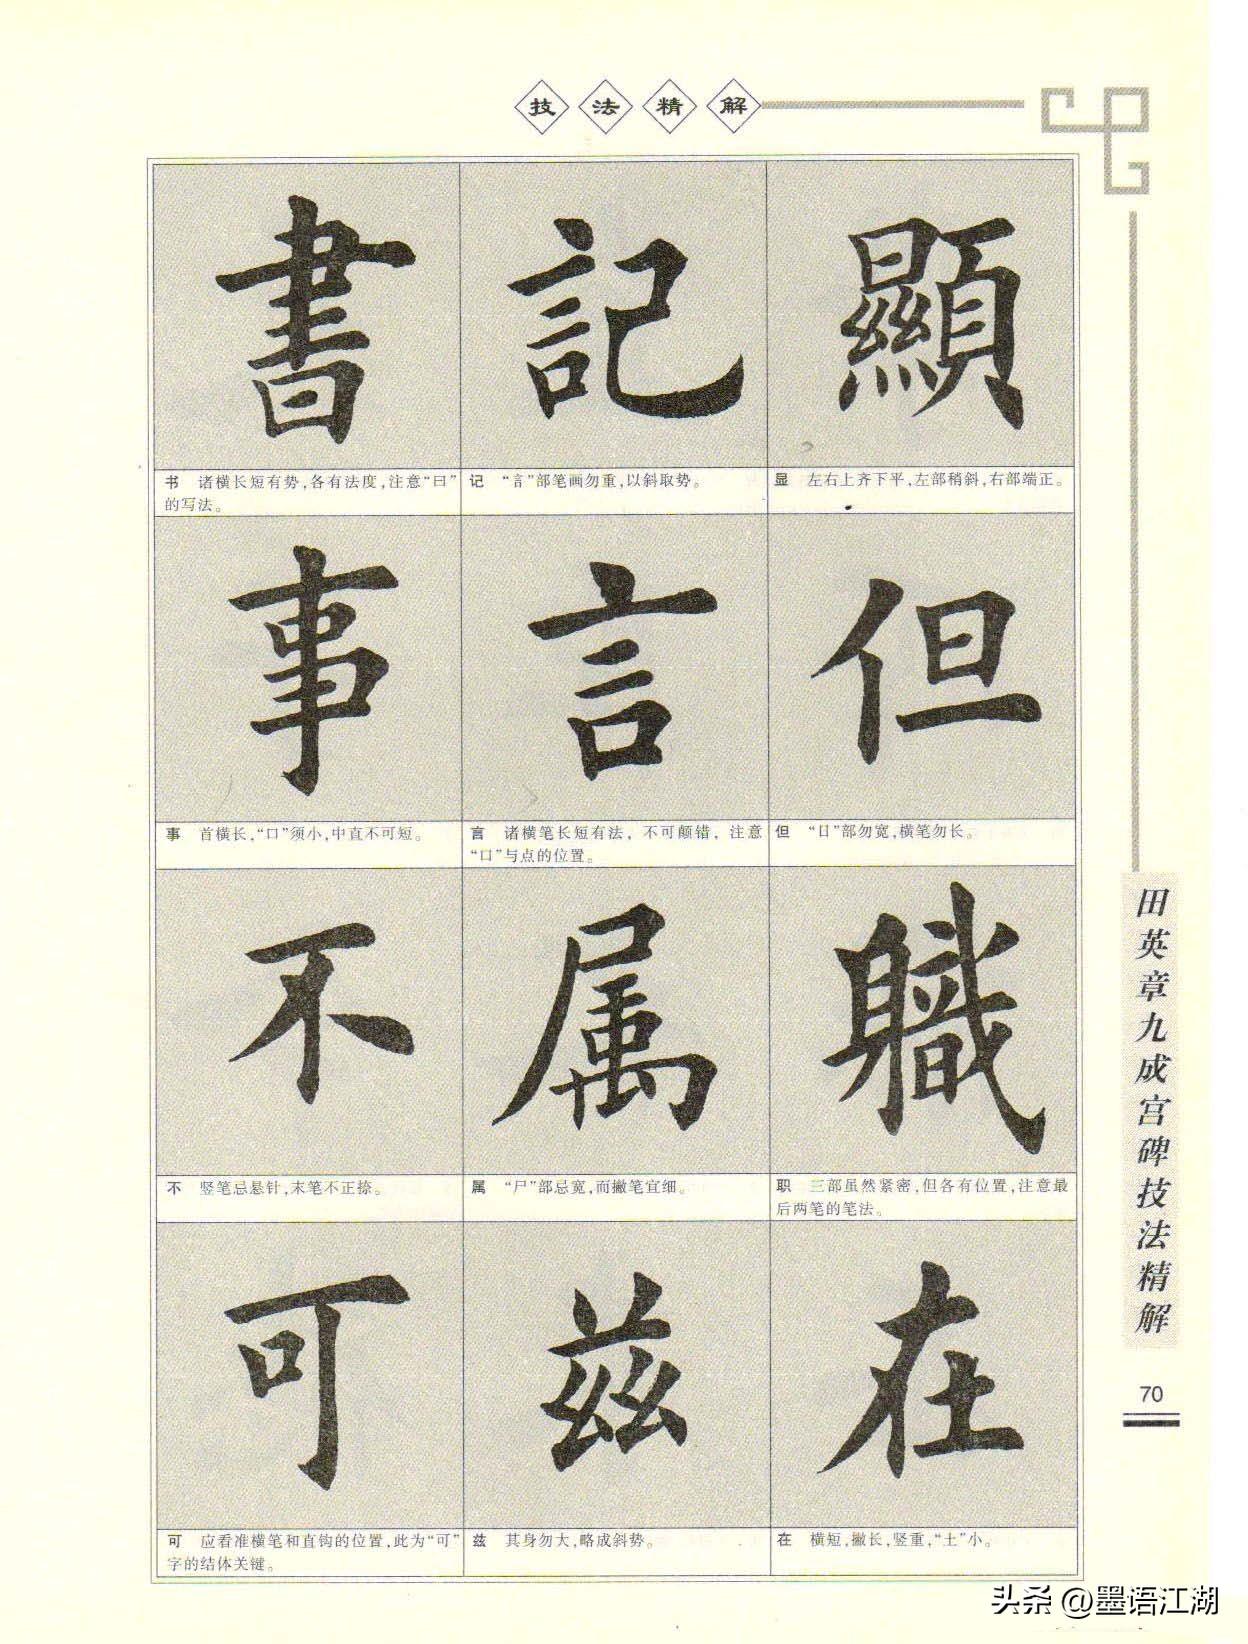 技法精解
書 記 顯
书 诸横长短有势,各有法度,注意“曰”
的写法。
记 “言”部笔画勿重,以斜取势。
显 左右上齐下平,左部稍斜,右部端正。
事 言 但
事 首横长,“口”须小,中直不可短。
言 诸横笔长短有法,不可颠错,注意
“口”与点的位置。
但 “日”部勿宽,横笔勿长。
不 属 軄
不 竖笔忌悬针,末笔不正捺。
属 “尸”部忌宽,而撇笔宜细。
职 三部虽然紧密,但各有位置,注意最
后两笔的笔法。
可 兹 在
可 应看准横笔和直钩的位置,此为“可”
字的结体关键。
兹 其身勿大,略成斜势。
在 横短,撇长,竖重,“土”小。
田英章九成宫碑技法精解
70
头条 @墨语江湖